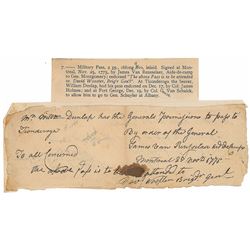 7. Military Pass, 2 pp., oblong 8vo, inlaid. Signed at Mont-
real, Nov. 25, 1775, by James Van Rensselaer, Aide-de-camp
to Gen. Montgomery; endorsed "The above Pass is to be extended
or David Wooster, Brig'r Gen'l". At Ticonderoga the bearer,
William Dunlap, had his pass endorsed on Dec. 17, by Col. James
Holmes; and at Fort George, Dec. 19, by Col. G. Van Schaick,
to allow him to go to Gen. Schuyler at Albany.
Mr Dunlap has the Generals permission to pass to
Ticonderoga
By order of the General
James Van Renselaer Aid DeCamp
To all Concerned
Montreal 28 Novr 1775
the above Pass is to be extended to
David Wooster Brigdr Genl